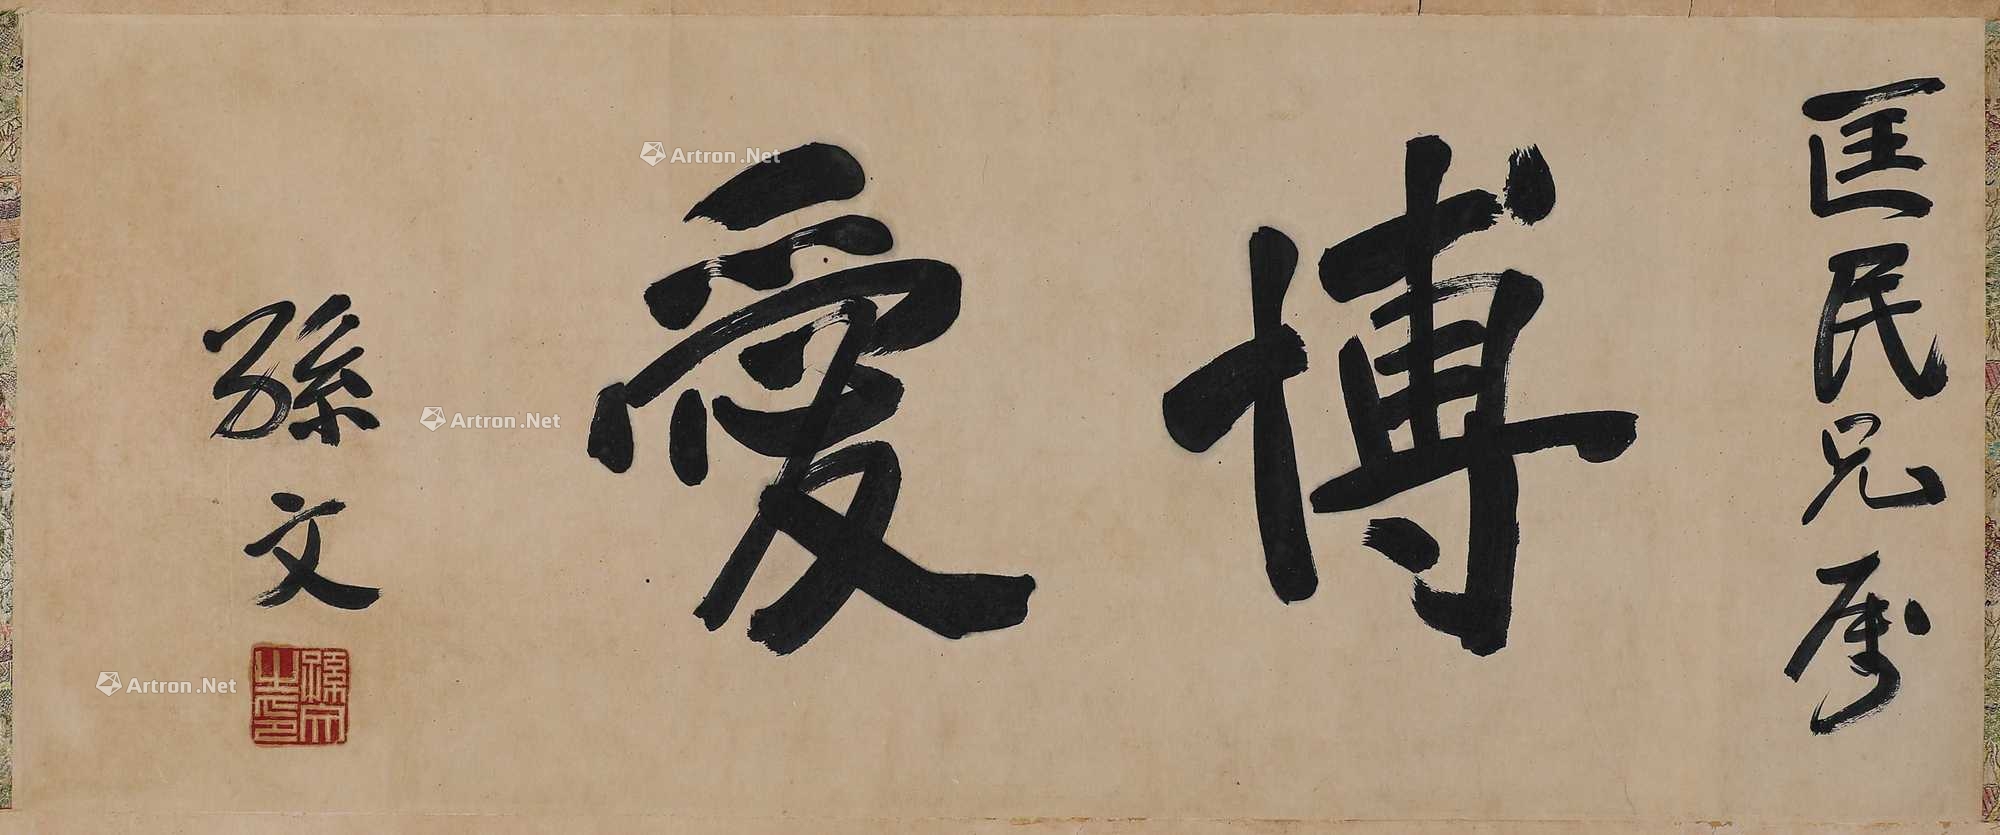 匡民兄属
博愛
孫文
孫文之印
Artron.Net
Artron.Net
Artron.Net